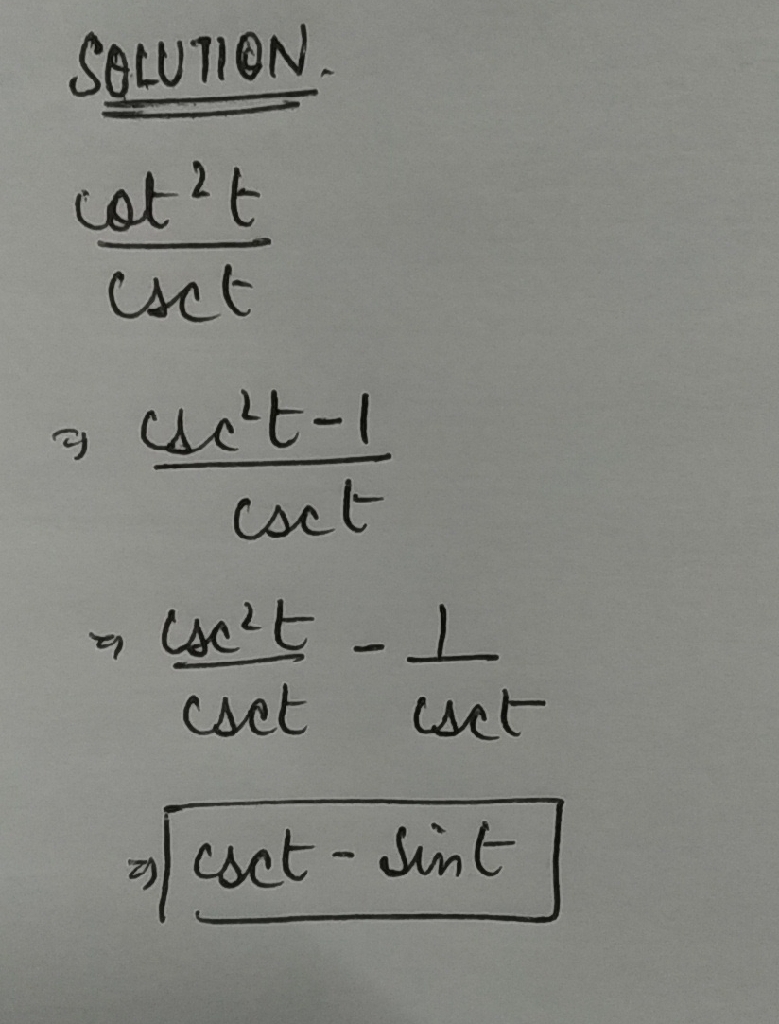 SOLUTION.
cot²t
csct
⇒ csc²t-1
csct
⇒ csc²t - 1
csct csct
⇒ csct - Sint